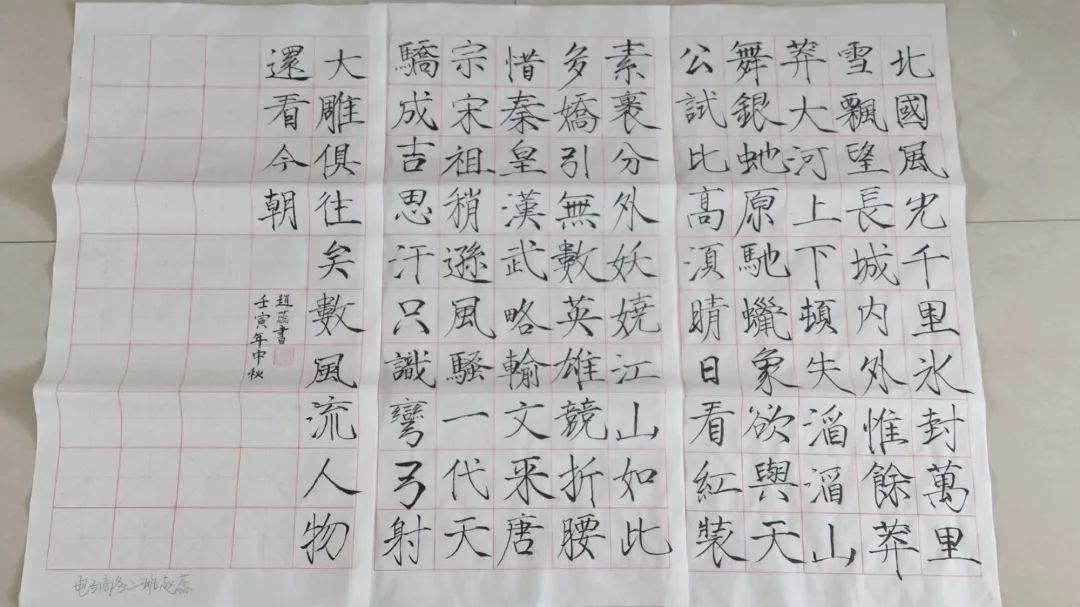 北國風光千里氷封萬里
雪飄望長城内外惟餘莽
莽大河上下頓失滔滔山
舞銀虵原馳蠟象欲與天
公試比髙湏晴日看紅裝
素裹分外妖嬈江山如此
多嬌引無數英雄競折腰
惜秦皇漢武略輸文采唐
宗宋祖稍遜風騷一代天
驕成吉思汗只識彎弓射
大雕俱往矣數風流人物
還看今朝
趙蕊書
壬寅年中秋
电子商务二班赵蕊